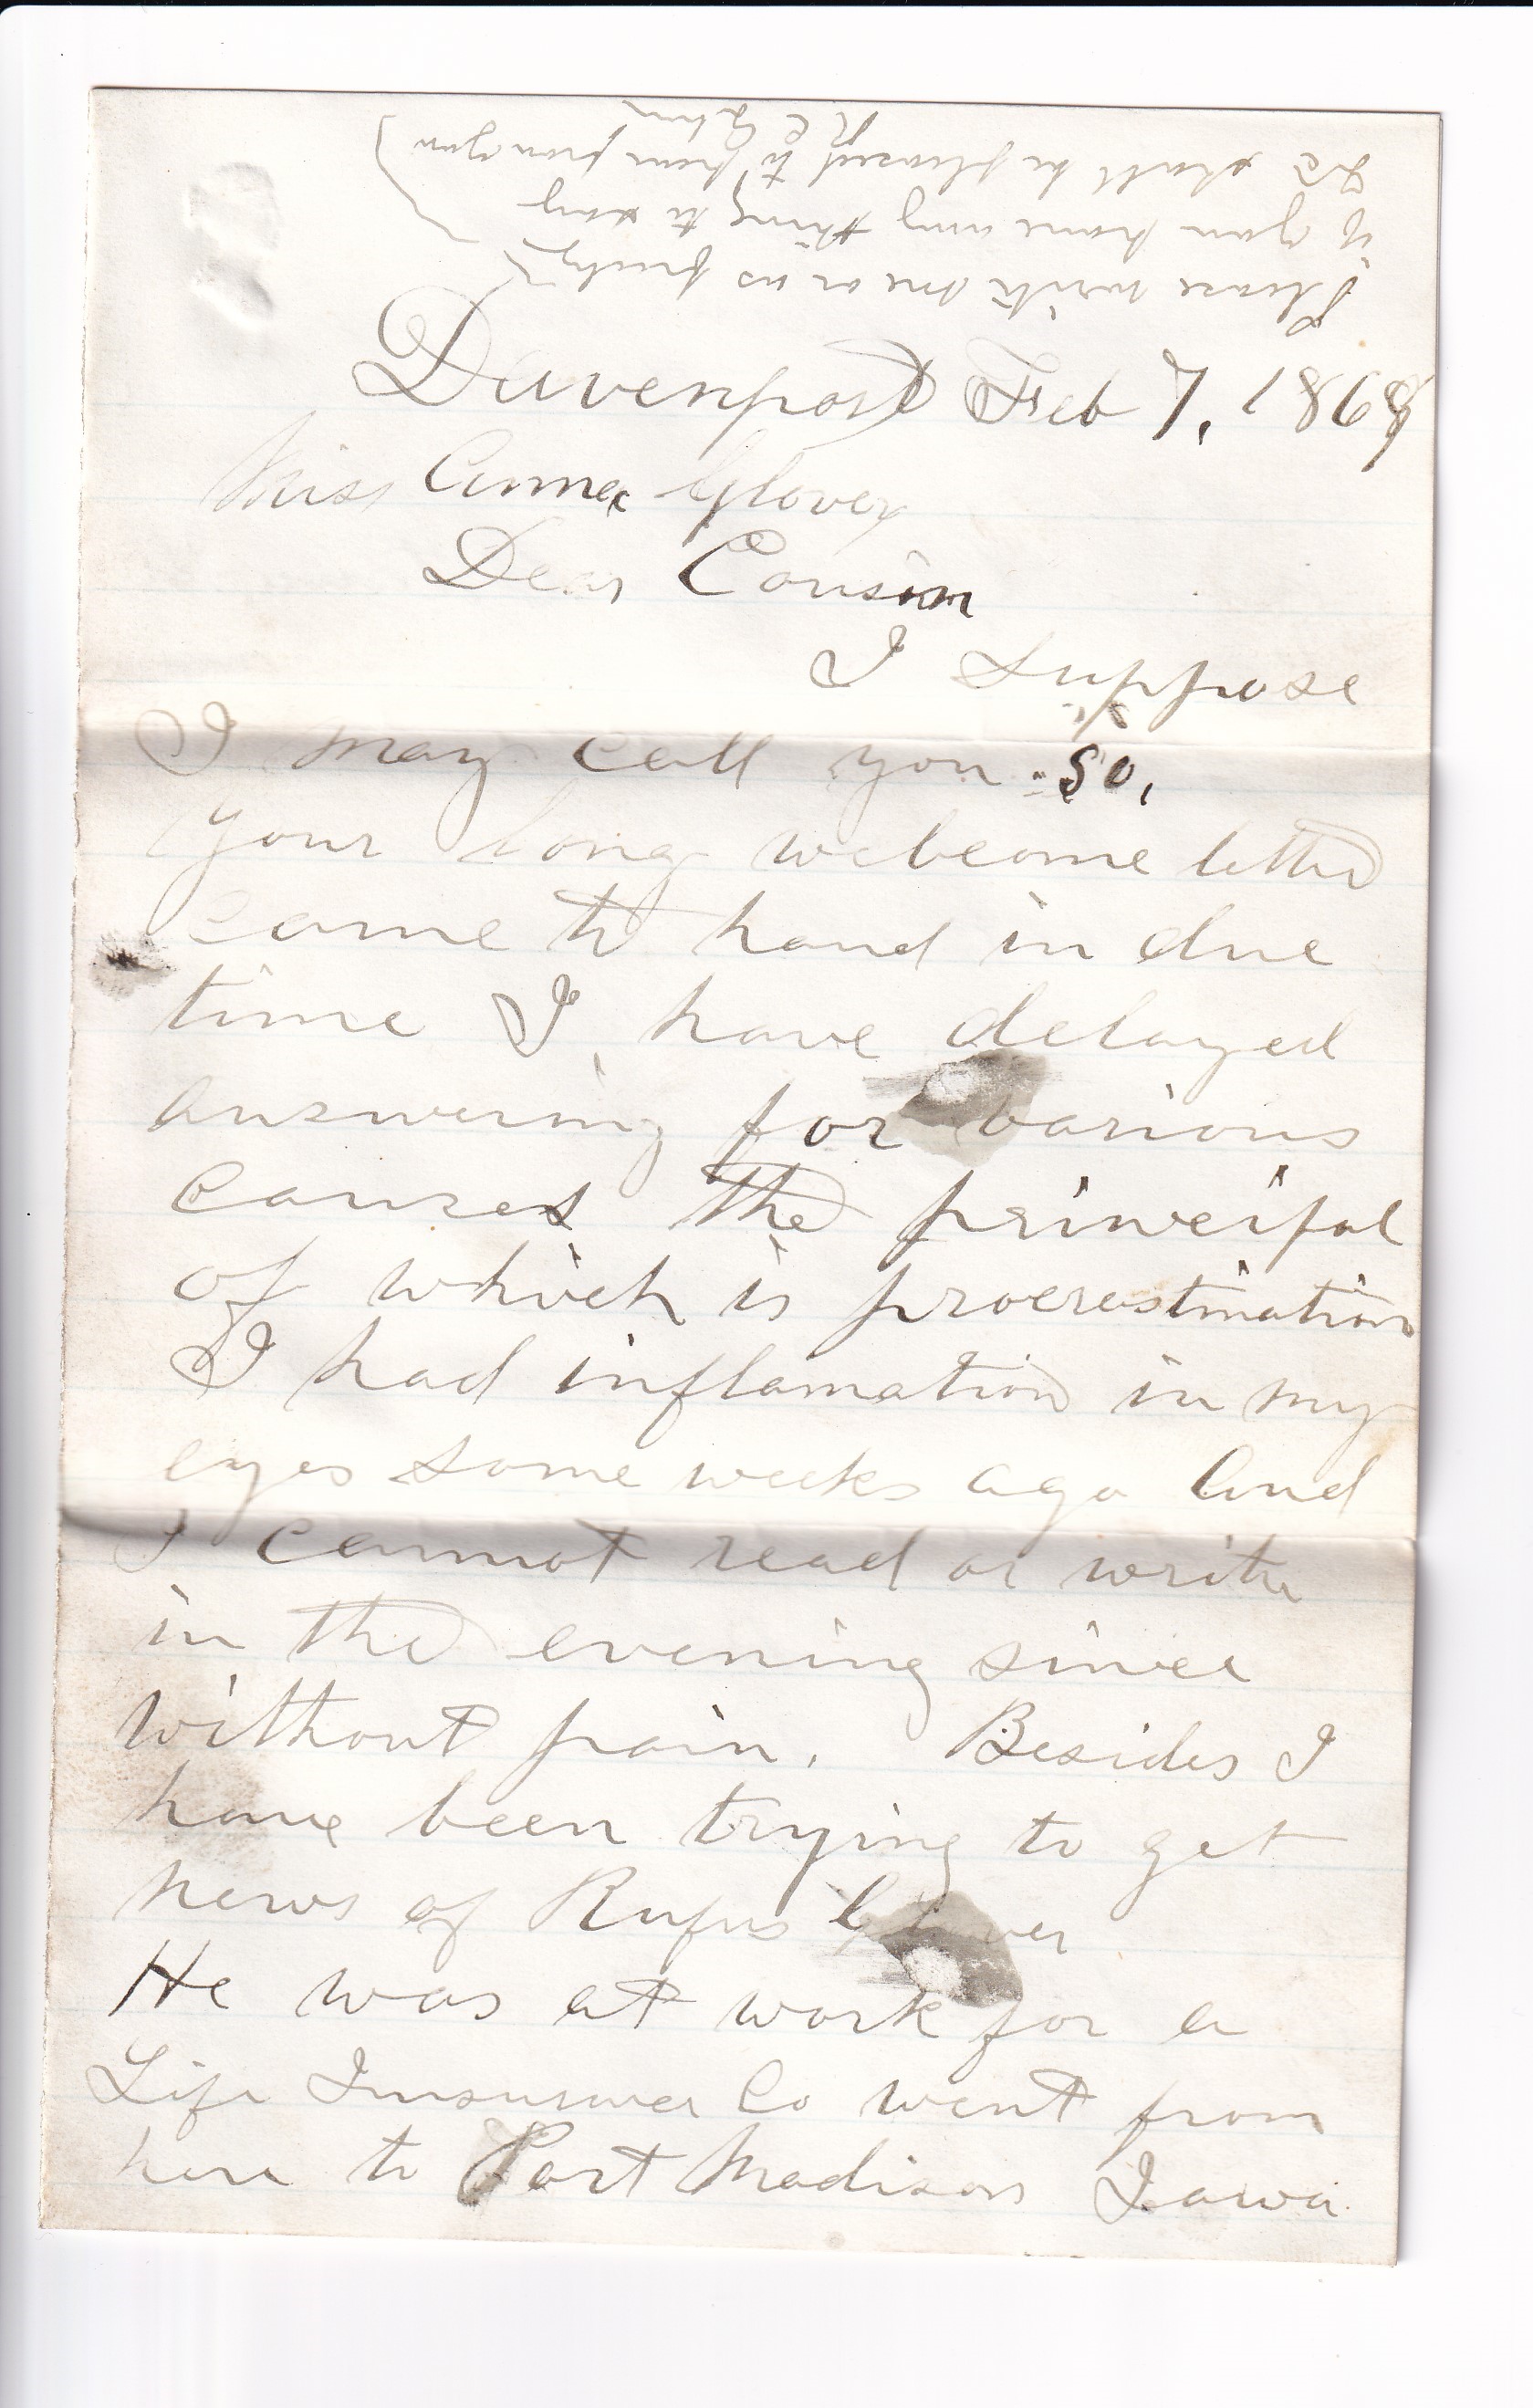 Please write one or us firstly
if you have any thing to say
We shall be pleased to hear from you
Davenport Feb 7, 1868
Miss Anna Glover
Dear Cousin
I suppose
I may call you so,
Your long welcome letter
came to hand in due
time I, have delayed
answering for various
causes the principal
of which is procrastination
I had inflamation in my
eyes some weeks ago And
I cannot read or write
in the evening since
without pain. Besides I
have been trying to get
news of Rufus Glover
He was at work for a
Life Insurance Co went from
here to Fort Madison Iowa